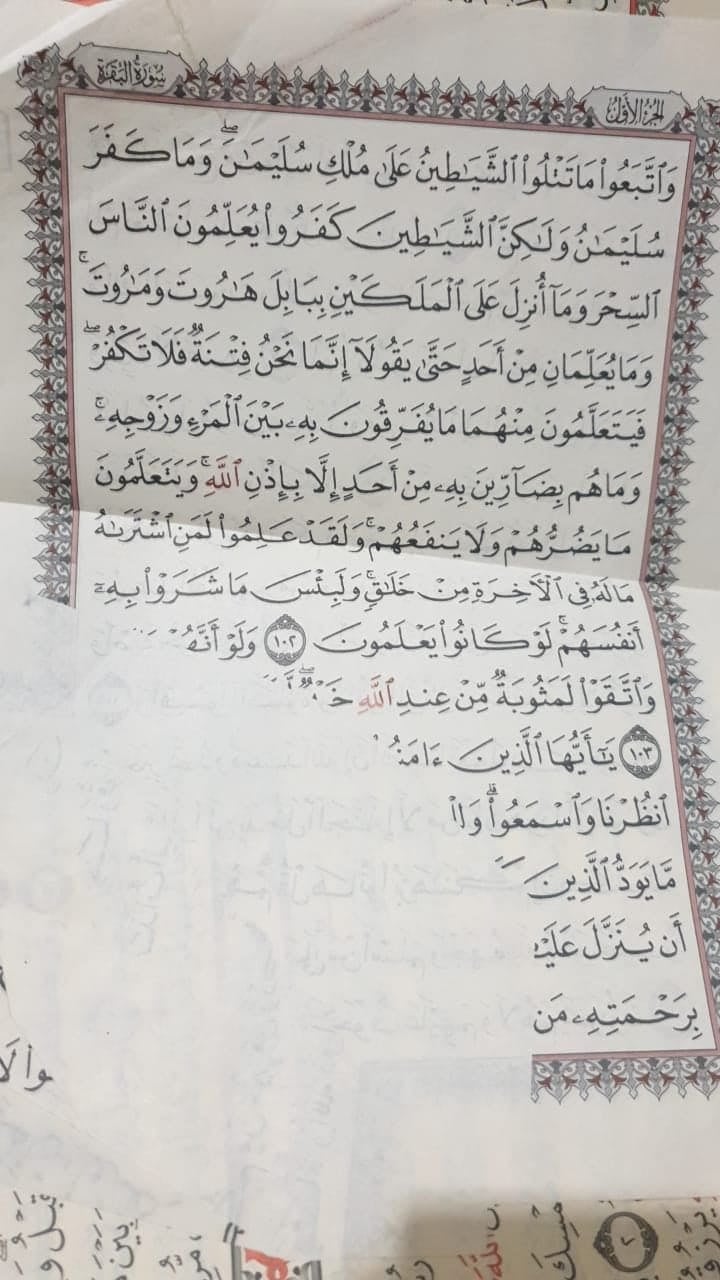 الجزء الأول
سورة البقرة
وَٱتَّبَعُوا۟ مَا تَتْلُوا۟ ٱلشَّيَـٰطِينُ عَلَىٰ مُلْكِ سُلَيْمَـٰنَ ۖ وَمَا كَفَرَ
سُلَيْمَـٰنُ وَلَـٰكِنَّ ٱلشَّيَـٰطِينَ كَفَرُوا۟ يُعَلِّمُونَ ٱلنَّاسَ
ٱلسِّحْرَ وَمَآ أُنزِلَ عَلَى ٱلْمَلَكَيْنِ بِبَابِلَ هَـٰرُوتَ وَمَـٰرُوتَ ۚ
وَمَا يُعَلِّمَانِ مِنْ أَحَدٍ حَتَّىٰ يَقُولَآ إِنَّمَا نَحْنُ فِتْنَةٌ فَلَا تَكْفُرْ ۖ
فَيَتَعَلَّمُونَ مِنْهُمَا مَا يُفَرِّقُونَ بِهِۦ بَيْنَ ٱلْمَرْءِ وَزَوْجِهِۦ ۚ
وَمَا هُم بِضَآرِّينَ بِهِۦ مِنْ أَحَدٍ إِلَّا بِإِذْنِ ٱللَّهِ ۚ وَيَتَعَلَّمُونَ
مَا يَضُرُّهُمْ وَلَا يَنفَعُهُمْ ۚ وَلَقَدْ عَلِمُوا۟ لَمَنِ ٱشْتَرَىٰهُ
مَا لَهُۥ فِى ٱلْـَٔاخِرَةِ مِنْ خَلَـٰقٍ ۚ وَلَبِئْسَ مَا شَرَوْا۟ بِهِۦٓ
أَنفُسَهُمْ ۚ لَوْ كَانُوا۟ يَعْلَمُونَ ١٠٢ وَلَوْ أَنَّهُمْ
وَٱتَّقَوْا۟ لَمَثُوبَةٌ مِّنْ عِندِ ٱللَّهِ
١٠٣ يَـٰٓأَيُّهَا ٱلَّذِينَ ءَامَنُ
ٱنظُرْنَا وَٱسْمَعُوا۟ ۗ
مَّا يَوَدُّ ٱلَّذِينَ
أَن يُنَزَّلَ عَلَيْ
بِرَحْمَتِهِۦ مَن